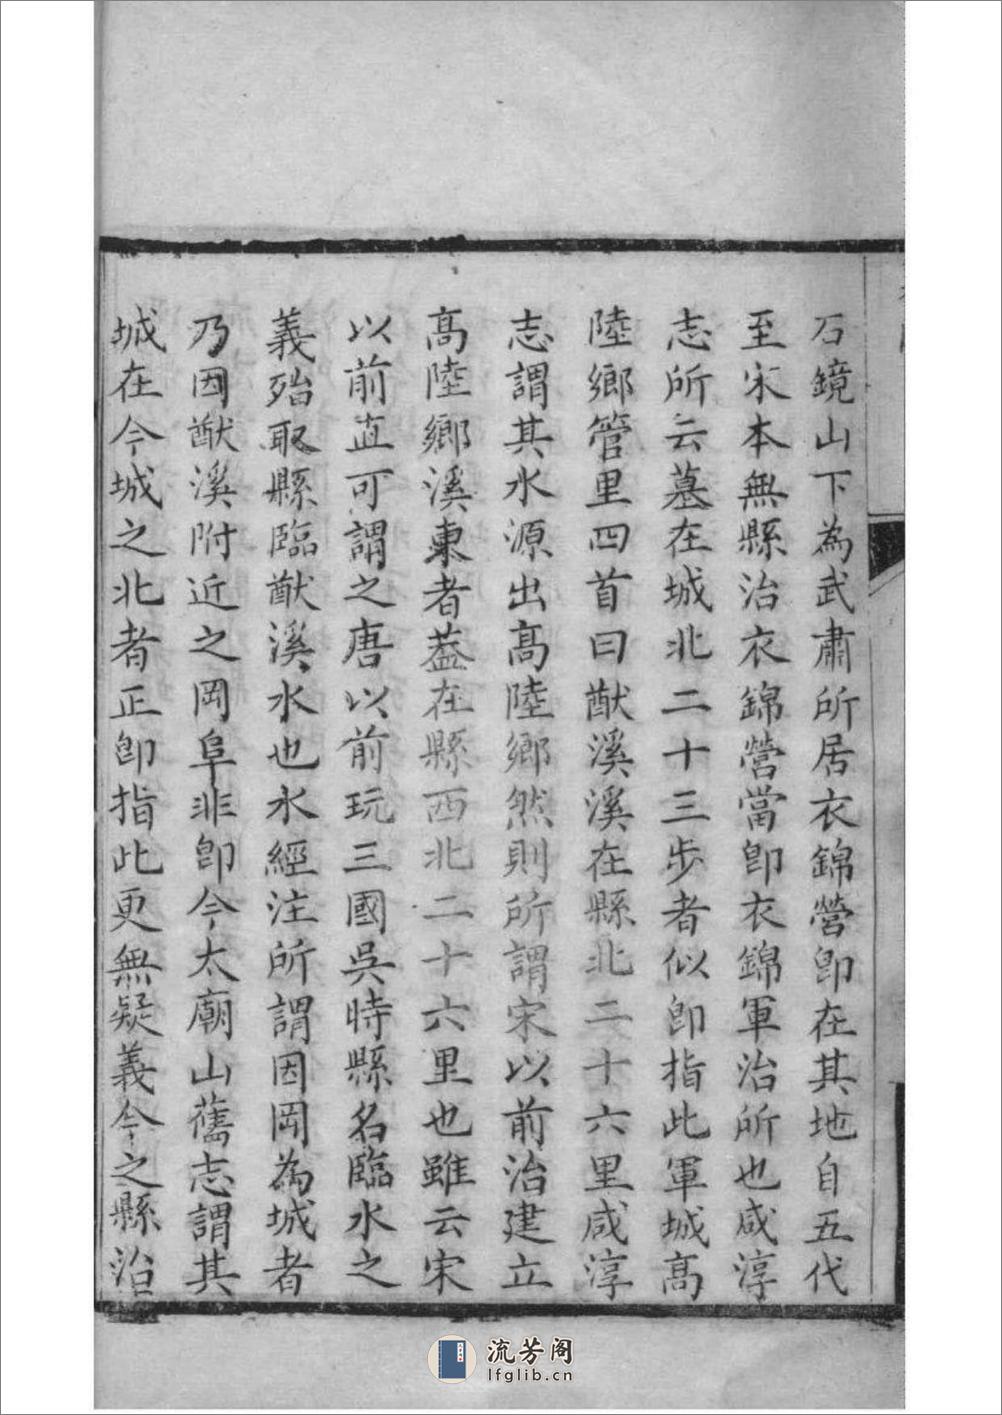 石鏡山下為武肅所居衣錦營卽在其地自五代
至宋本無縣治衣錦營當卽衣錦軍治所也咸淳
志所云墓在城北二十三步者似卽指此軍城高
陸鄉管里四首曰猷溪溪在縣北二十六里咸淳
志謂其水源出高陸鄉然則所謂宋以前治建立
高陸鄉溪東者葢在縣西北二十六里也雖云宋
以前直可謂之唐以前玩三國吳時縣名臨水之
義殆取縣臨猷溪水也水經注所謂因岡為城者
乃因猷溪附近之岡阜非卽今太廟山舊志謂其
城在今城之北者正卽指此更無疑義今之縣治
流芳阁
lfglib.cn